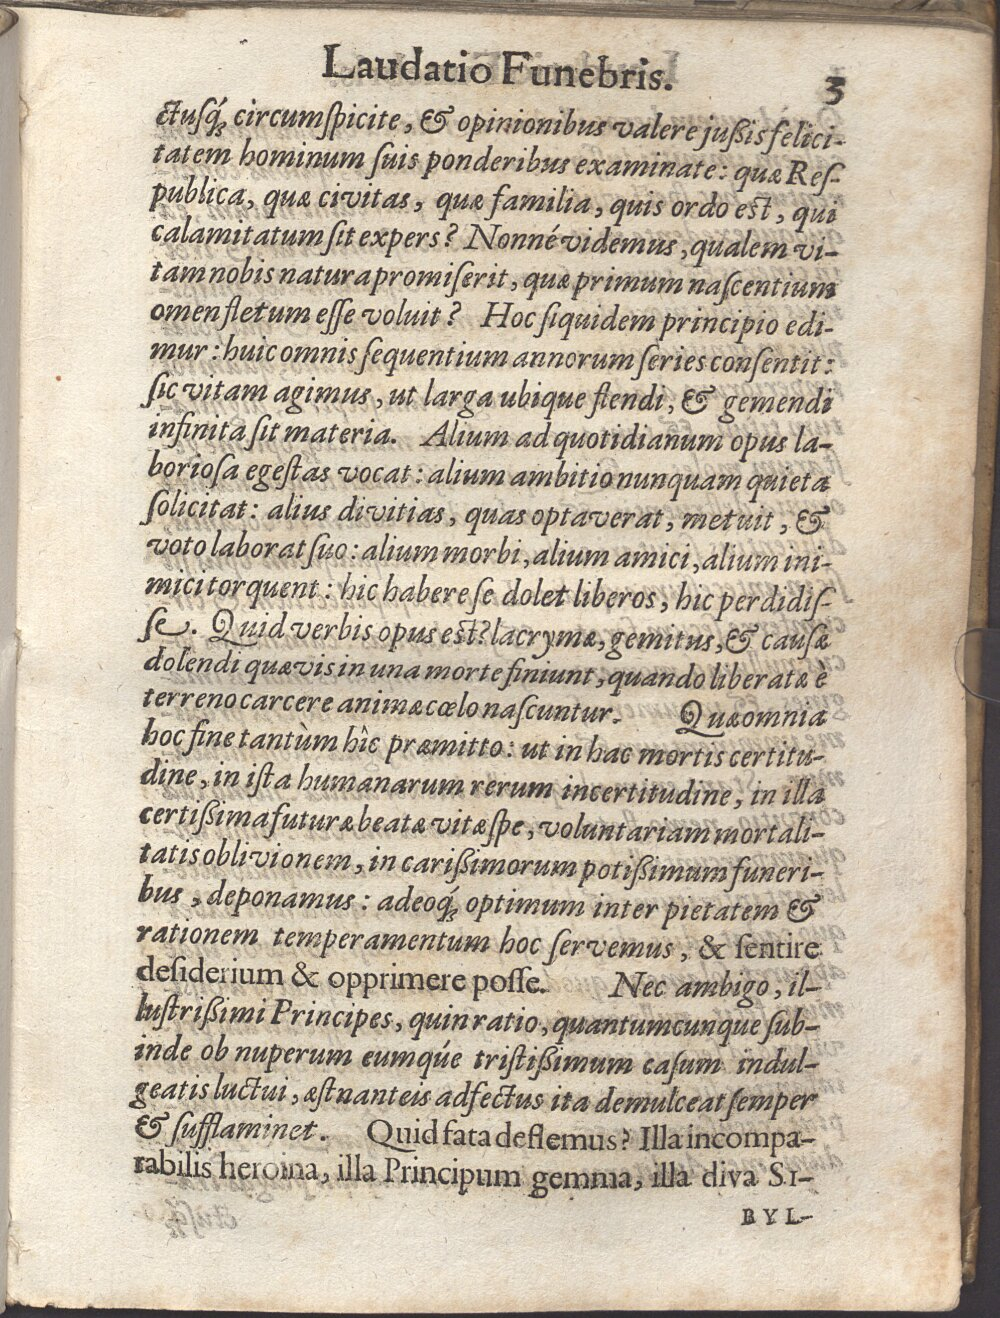 Laudatio Funebris. 3
ctuſq́ꝫ circumſpicite, & opinionibus valere juſsis felici-
tatem hominum ſuis ponderibus examinate: quæ Reſ-
publica, quæ civitas, quæ familia, quis ordo est, qui
calamitatum ſit expers? Nonné videmus, qualem vi-
tam nobis natura promiſerit, quæ primum naſcentium
omen fletum eſſe voluit? Hoc ſiquidem principio edi-
mur: huic omnis ſequentium annorum ſeries conſentit:
ſic vitam agimus, ut larga ubique flendi, & gemendi
infinita ſit materia. Alium ad quotidianum opus la-
borioſa egeſtas vocat: alium ambitio nunquam quieta
ſolicitat: alius divitias, quas optaverat, metuit, &
voto laborat ſuo: alium morbi, alium amici, alium ini-
mici torquent: hic habere ſe dolet liberos, hic perdidiſ-
ſe. Quid verbis opus est? lacrymæ, gemitus, & cauſæ
dolendi quævis in una morte finiunt, quando liberatæ è
terreno carcere animæ cœlo naſcuntur. Quæ omnia
hoc fine tantùm hîc præmitto: ut in hac mortis certitu-
dine, in iſta humanarum rerum incertitudine, in illa
certiſsima futuræ beatæ vitæ ſpe, voluntariam mortali-
tatis oblivionem, in cariſsimorum potiſsimum funeri-
bus, deponamus: adeoq́ꝫ optimum inter pietatem &
rationem temperamentum hoc ſervemus, & ſentire
deſiderium & opprimere poſſe. Nec ambigo, il-
luſtriſsimi Principes, quin ratio, quantumcunque ſub-
inde ob nuperum eumqúe triſtiſsimum caſum indul-
geatis luctui, æſtnanteis adfectus ita demulceat ſemper
& ſufflaminet. Quid fata deflemus? Illa incompa-
rabilis heroina, illa Principum gemma, illa diva SI-
BYL-